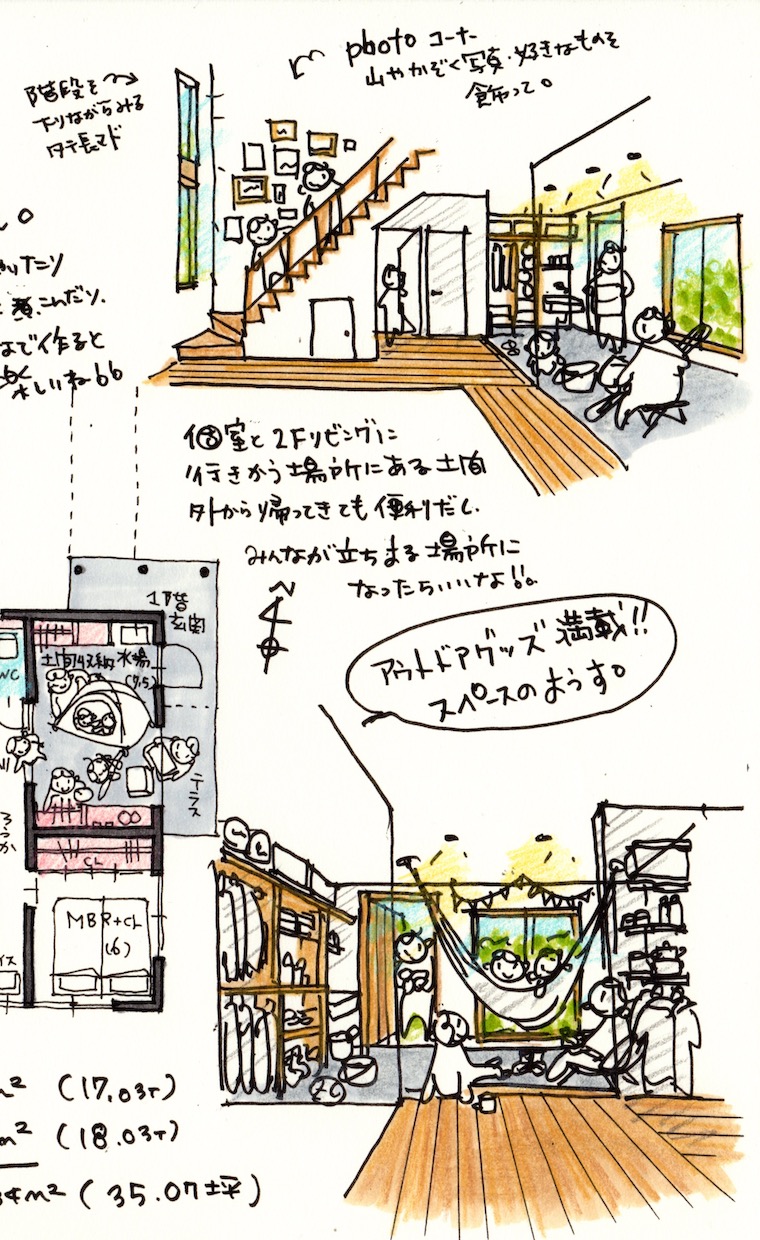 photo コーナー
山やかぞく写真・好きなものを
飾って。
階段を
下りながらみる
タテ長マド
たり
煮こんだり。
まで作ると
楽しいねbb
個室と2Fリビングに
行きかう場所にある土間
外から帰ってきても便利だし
みんなが立ちまる場所に
なったらいいな!!。
N
アウトドアグッズ満載!!
スペースのようす。
1階
玄関
土間収納 水場
(7.5)
WC
テラス
ろうか
CL
MBR+CL
(6)
イス
m² (17.03T)
m² (18.03T)
4m² (35.07坪)